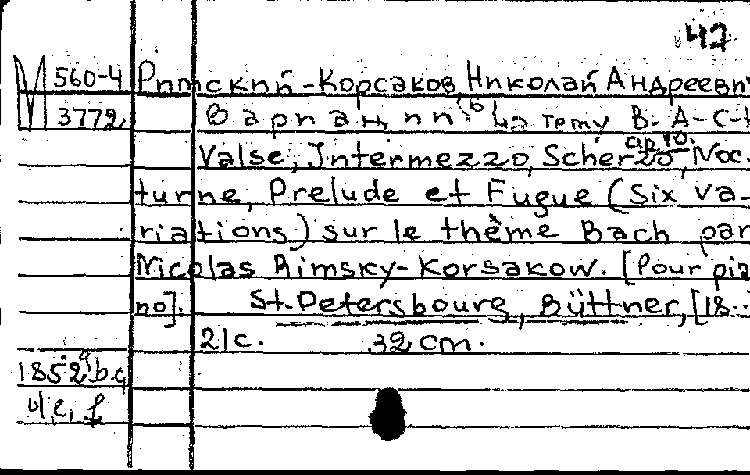 47
М 560-4 Римский-Корсаков, Николай Андреевич
3772 Вариации (6) на тему B-A-C-H
ор. 10.
Valse, Intermezzo, Scherzo, Noc-
turne, Prelude et Fugue (Six va-
riations) sur le thème Bach par
Nicolas Rimsky-Korsakow. [Pour pia
no]. St. Petersbourg, Büttner, [18..
21c. 32 cm.